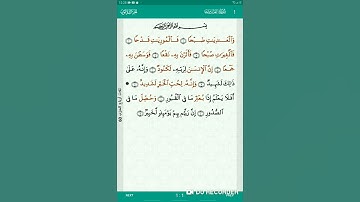 بِسْمِ اللَّهِ الرَّحْمَٰنِ الرَّحِيمِ
وَٱلْعَٰدِيَٰتِ ضَبْحًا ۝ فَٱلْمُورِيَٰتِ قَدْحًا ۝
فَٱلْمُغِيرَٰتِ صُبْحًا ۝ فَأَثَرْنَ بِهِۦ نَقْعًا ۝ فَوَسَطْنَ بِهِۦ
جَمْعًا ۝ إِنَّ ٱلْإِنسَٰنَ لِرَبِّهِۦ لَكَنُودٌ ۝ وَإِنَّهُۥ عَلَىٰ
ذَٰلِكَ لَشَهِيدٌ ۝ وَإِنَّهُۥ لِحُبِّ ٱلْخَيْرِ لَشَدِيدٌ ۝
أَفَلَا يَعْلَمُ إِذَا بُعْثِرَ مَا فِى ٱلْقُبُورِ ۝ وَحُصِّلَ مَا فِى
ٱلصُّدُورِ ۝ إِنَّ رَبَّهُم بِهِمْ يَوْمَئِذٍ لَّخَبِيرٌۢ ۝
DU RECORDER